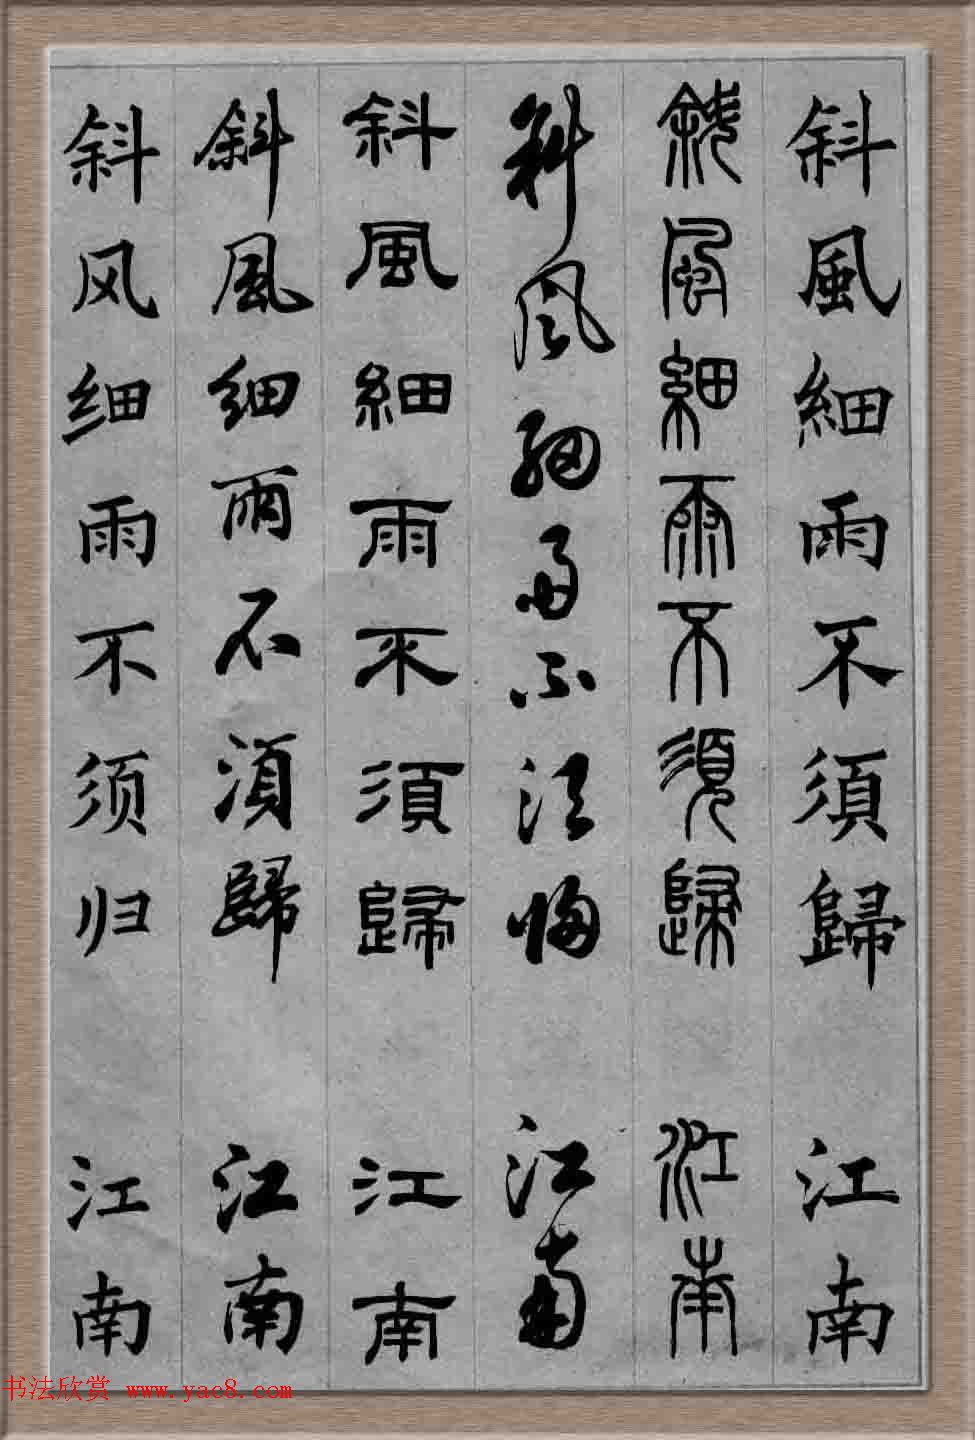 斜風細雨不須歸 江南
斜風細雨不須歸 江南
斜風細雨不須歸 江南
斜風細雨不須歸 江南
斜風细雨不須歸 江南
斜风细雨不须归 江南
书法欣赏 www.yac8.com